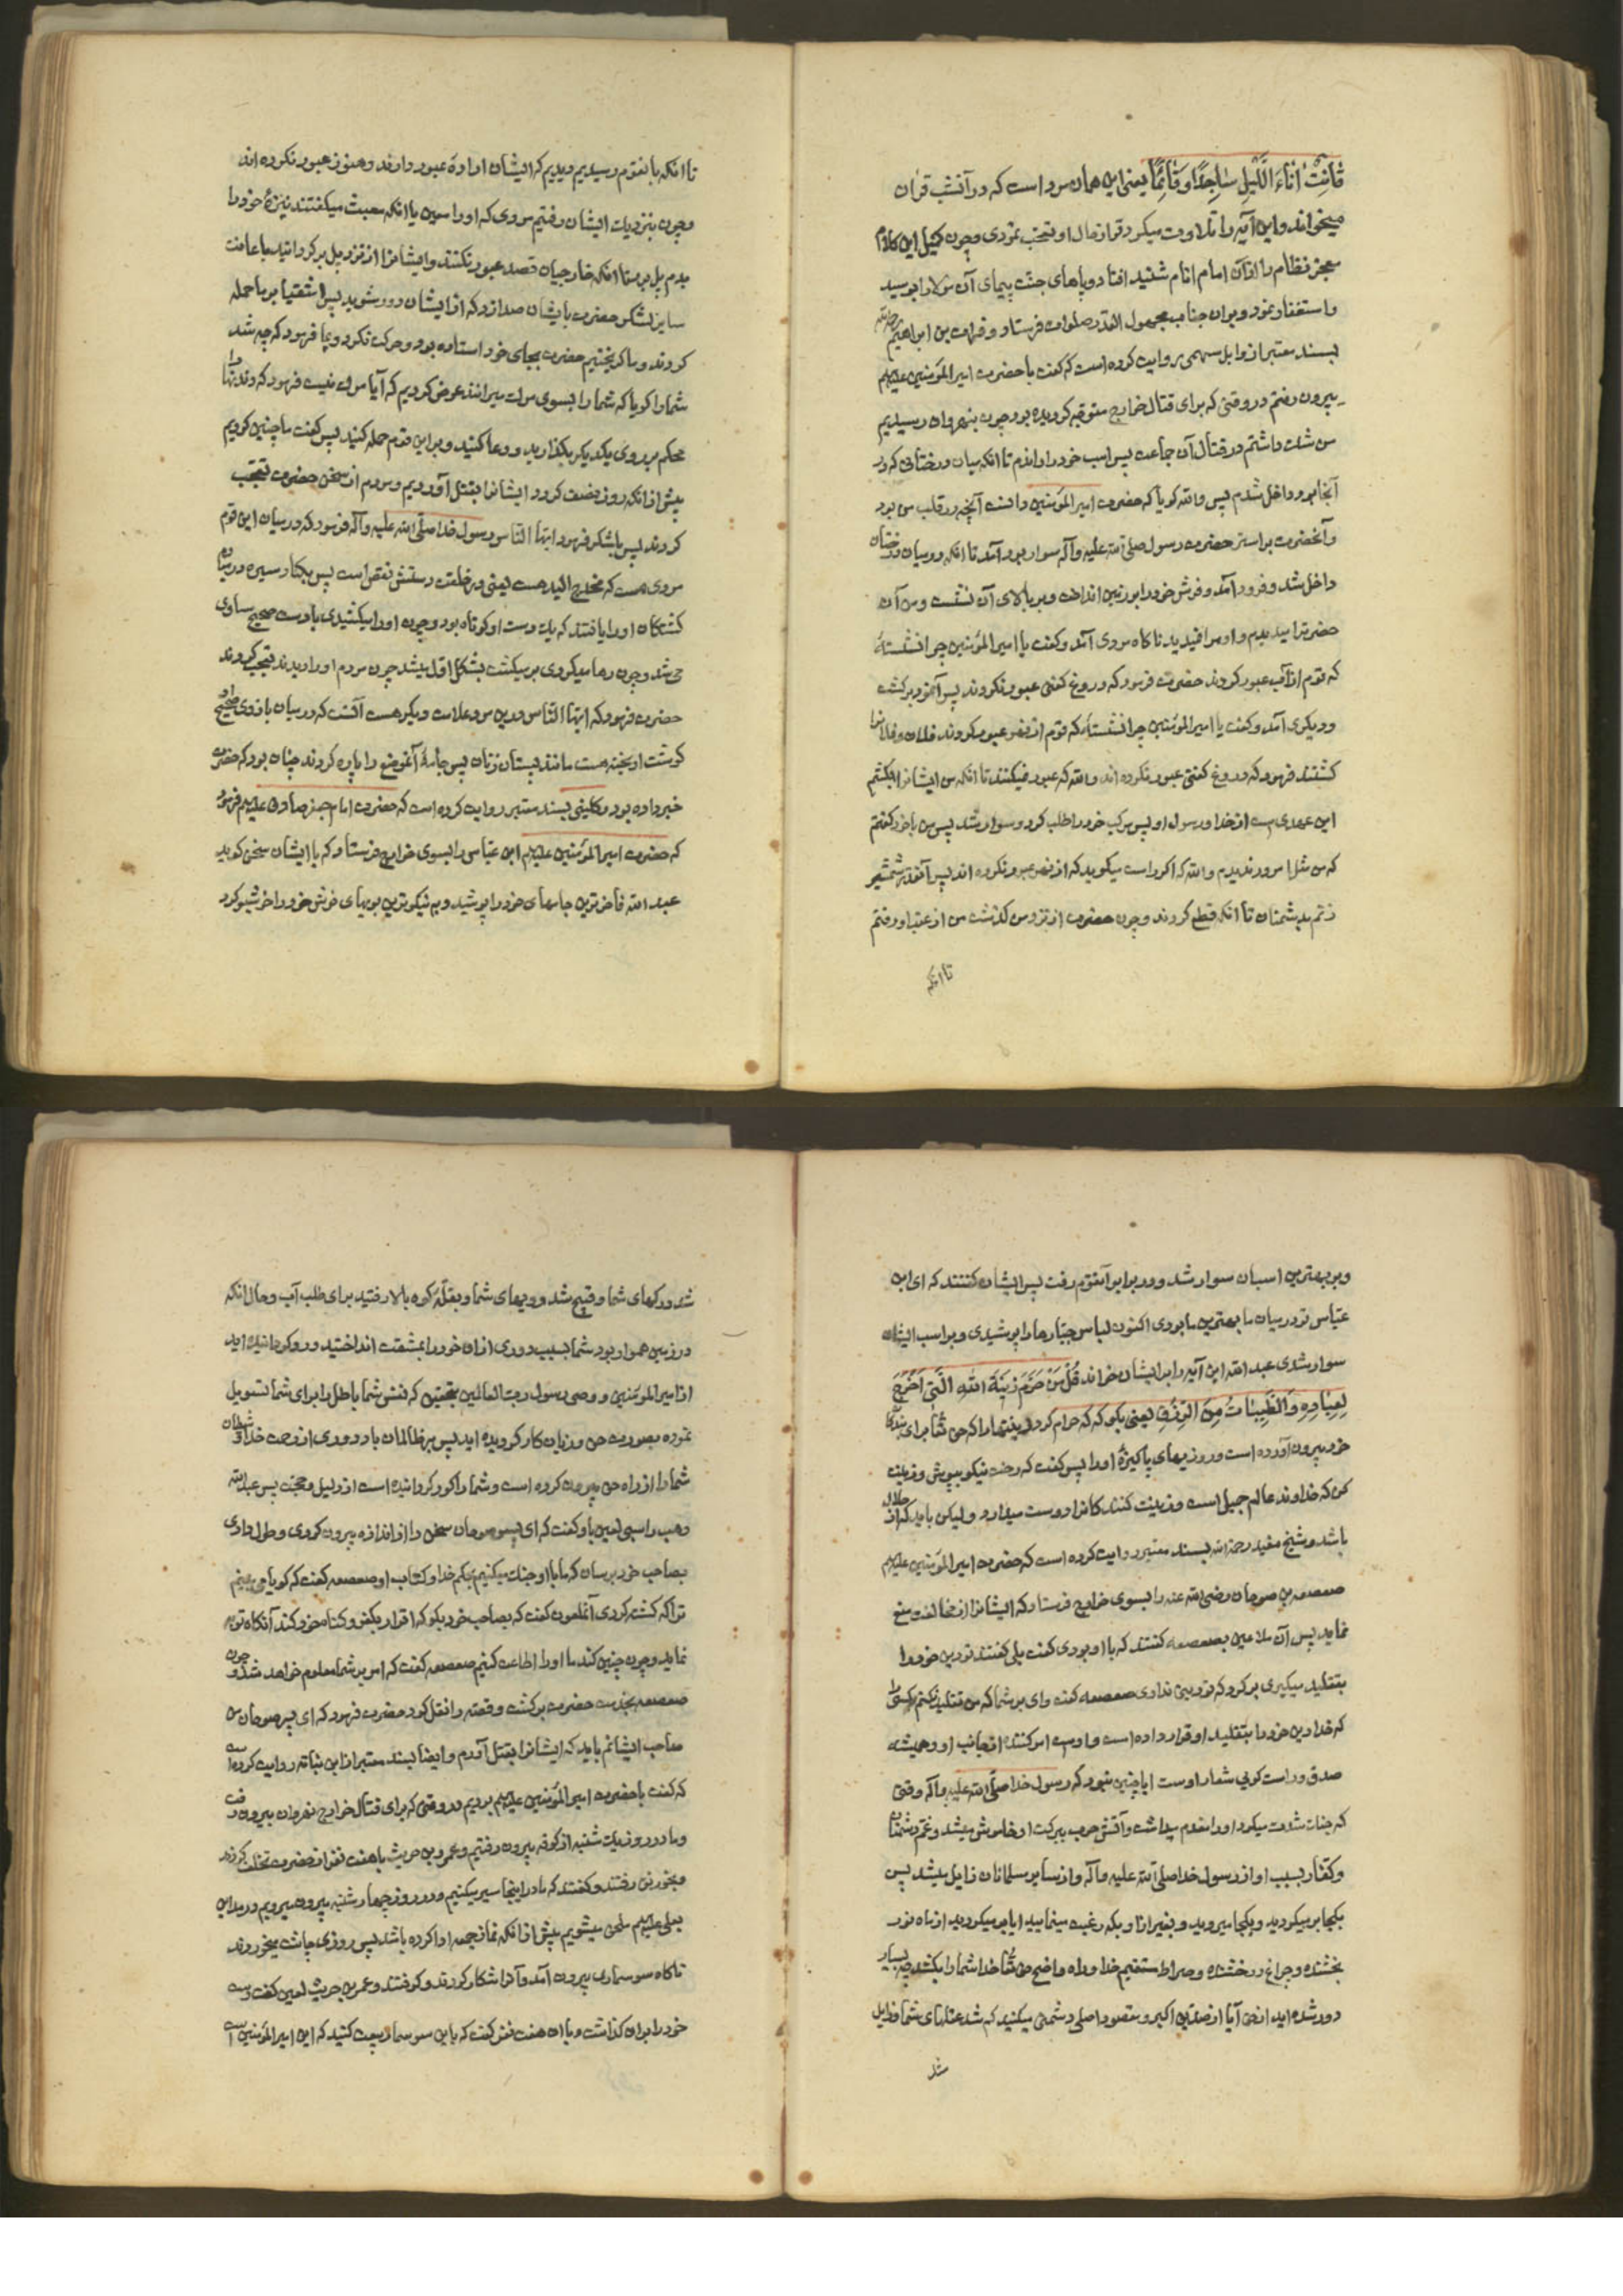 قَانِتٌ اٰنَاءَ اللَّیْلِ سٰاجِدًا وَقَائِمًا یعنی این همان مرد است که در آنشب قرآن
میخواند و این آیه را تلاوت میکرد قراز حال او تعجب نمودی وچون کمیل این کلام
معجز نظام را از آن امام انام شنید افتاد و پاهای جنت پیمای آن مولا را بوسید
و استغفار نمود و بر ان جناب مجهول القدر صلوات فرستاد و فرات بن ابراهیم رحمه الله
بسند معتبر از وابل سهمی روایت کرده است که گفت با حضرت امیر المؤمنین علیه السلام
بیرون رفتم در وقتی که برای قتال خوارج متوجه گردیده بود چون بنهروان رسیدیم
من شک داشتم در قتال آن جماعت پس اسب خود را راندم تا انکه میان درختانی که در
آنجا بود داخل شدم پس والله گویا که حضرت امیر المؤمنین دانست آنچه در قلب من بود
و آنحضرت بر استر حضرت رسول صلی الله علیه وآله سوار بود آمد تا انکه در میان درختان
داخل شد و فرود آمد و فرش خود را بر زمین انداخت و بر بالای آن نشست و من آن
حضرترا میدیدم و او مرا نمیدید ناگاه مردی آمد و گفت یا امیر المؤمنین چرا نشستهٔ
که قوم از آب عبور کردند حضرت فرمود که دروغ گفتی عبور نکردند پس آنمرد برگشت
و دیگری آمد و گفت یا امیر المؤمنین چرا نشستهٔ که قوم از نهر عبور کردند فلان و فلانرا
کشتند فرمود که دروغ گفتی عبور نکرده اند والله که عبور نمیکنند تا انکه من ایشانرا بکشم
این عهدی است از خدا و رسول او پس مرکب خود را طلب کرد و سوار شد پس من با خود گفتم
که من مثل امروز ندیدم والله که اگر راست میگوید که از نهر عبور نکرده اند پس آنقدر شمشیر
زنم بدشمنان تا انکه قطع کردند وچون حضرت از نزد من گذشت من از عقب او رفتم
تا انکه
تا انکه بانقوم رسیدیم دیدیم که ایشان ارادهٔ عبور دارند و هنوز عبور نکرده اند
وچون بنزدیک ایشان رفتیم مردی که او را سبرین یا انکه معبث میگفتند نیزهٔ خود را
بدم پل بر بنا انکه خارجیان قصد عبور نکنند و ایشانرا از نزد پل برگردانید با عامت
سایر لشکر حضرت بایشان صدا زد که از ایشان دور شوید پس اشقیا بر ما حمله
کردند و ما گریختیم حضرت بجای خود استاده بود و حرکت نکرد و بما فرمود که چه شد
شما را گویا که شما را بسوی مرک میرانند عرض کردیم که آیا مرک نیست فرمود که دندانها را
محکم بر روی یکدیگر بگذارید و دعا کنید و بر این قوم حمله کنید پس گفت ما چنین کردیم
پیش از انکه روز نصف گردد ایشانرا بقتل آوردیم و مردم از سخن حضرت تعجب
کردند پس بلشکر فرمود ایها الناس رسول خدا صلی الله علیه وآله فرمود که در میان این قوم
مردی هست که مخدج الید هست یعنی در خلقت دستش نقص است پس بکنار رسیده در میان
کشتگان او را یافتند که یک دست او کوتاه بود وچون او را میکشیدی با دست صحیح مساوی
می شد وچون رها میکردی بر میگشت بشکل اول میشد چون مردم او را دیدند تعجب کردند
حضرت فرمود که ایها الناس در این مرد علامت دیگر هست آنست که در میان بازوی صحیح او
گوشت او بخته هست مانند پستان زنان پس جامهٔ آنموضع را پاره کردند چنان بود که حضرت
خبر داده بود و کلینی بسند معتبر روایت کرده است که حضرت امام جعفر صادق علیه السلام فرمود
که حضرت امیر المؤمنین علیه السلام ابن عباس را بسوی خوارج فرستاد که با ایشان سخن گوید
عبد الله فاخرترین جامهای خود را پوشید و به نیکوترین بویهای خوش خود را خوشبو کرد
و بر بهترین اسبان سوار شد و در برابر آنقوم رفت پس ایشان گفتند که ای ابن
عباس تو در میان ما بهترین ما بودی اکنون لباس جبارها را پوشیدی و بر اسب ایشان
سوار شدی عبد الله این آیه را بر ایشان خواند قُلْ مَنْ حَرَّمَ زِینَةَ اللّٰهِ الَّتِی اَخْرَجَ
لِعِبٰادِهِ وَالطَّیِّبٰاتُ مِنَ الرِّزْقِ یعنی بگو که که حرام کرد زینتها را که حق تعالی برای بندگان
خود بیرون آورده است و روزیهای پاکیزهٔ او را پس گفت که رخت نیکو بپوش و زینت
کن که خداوند عالم جمیل است و زینت کنندکانرا دوست میدارد ولیکن باید که از حلال
باشد و شیخ مفید رحمه الله بسند معتبر روایت کرده است که حضرت امیر المؤمنین علیه السلام
صعصعه بن صوحان رضی الله عنه را بسوی خوارج فرستاد که ایشانرا از مخالفت منع
نماید پس آن ملاعین بصعصعه گفتند که با او بودی گفت بلی گفتند تو دین خود را
بتقلید میگیری برگرد که تو دینی نداری صعصعه گفت وای بر شما که من تقلید نکنم کسی را
که خدا دین خود را بتقلید او قرار داده است و اوست امر کننده از جانب او و همیشه
صدق و راست گویی شعار اوست ایا چنین نبود که رسول خدا صلی الله علیه وآله وقتی
که جنک شدت میکرد او را مقدم میداشت و آتش حرب ببرکت او خاموش میشد و غم دشمنان
و کفار بسبب او از رسول خدا صلی الله علیه وآله و از سایر مسلمانان زایل میشد پس
بکجا بر میگردید و بکجا میروید و بغیر از او بکه رغبت مینمایید ایا بر میگردید از ماه نور
بخشنده و چراغ درخشنده و صراط مستقیم خدا و راه واضح حق تعالی خدا شما را بکشد چه بسیار
دور شده اید از حق آیا از صدیق اکبر و مقصود اصلی دشمنی میکنید کم شد عقلهای شما و زایل
شد
شد درکهای شما و قبیح شد رویهای شما و بقلهٔ کوه بالا رفتید برای طلب آب و حال انکه
در زمین هموار بود شما بسبب دوری از ان خود را بمشقت انداختید و رو گردانیده اید
از امیر المؤمنین و وصی رسول رب العالمین بتحقیق که نفس شما باطل را برای شما تسویل
نموده بصورت حق و زیان کار گردیده اید پس بر ظالمان باد دوری از رحمت خدا و شیطان
شما را از راه حق بیرون کرده است و شما را کور گردانیده است از دلیل و حجت پس عبد الله
وهب راسبی لعین باو گفت که ای پسر صوحان سخن را از اندازه بیرون کردی و طول دادی
بصاحب خود برسان که ما با او جنک میکنیم بحکم خدا و کتاب او صعصعه گفت که گویا می بینم
ترا که کشته گردی آنملعون گفت که بصاحب خود بگو که اقرار بکفر و گناه خود کند آنگاه توبه
نماید وچون چنین کند ما او را اطاعت کنیم صعصعه گفت که امر بر شما معلوم خواهد شد وچون
صعصعه بخدمت حضرت برگشت و قصه را نقل کرد حضرت فرمود که ای پسر صوحان من
صاحب ایشانم باید که ایشانرا بقتل آورم و ایضا بسند معتبر از ابن نباته روایت کرده است
که گفت با حضرت امیر المؤمنین علیه السلام بودیم در وقتی که برای قتال خوارج نهروان بیرون رفت
و ما در روز یکشنبه از کوفه بیرون رفتیم و عمرو بن حریث با هفت نفر از حضرت تخلف کردند
و بخورنق رفتند و گفتند که ما در اینجا سیر میکنیم و در روز چهارشنبه بیرون میرویم در مداین
بعلی علیه السلام ملحق میشویم پیش از انکه نماز جمعه ادا کرده باشد پس روزی چاشت میخوردند
ناگاه سوسماری بیرون آمد و آنرا شکار کردند و گرفتند و عمرو بن حریث لعین کف دست
خود را بر ان گذاشت و با ان هفت نفر گفت که با این سوسمار بیعت کنید که این امیر المؤمنین است